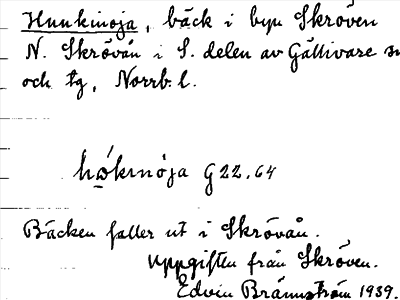 Hunkinoja, bäck i byn Skröven
N. Skrövån i S. delen av Gällivare sn
och tg, Norrb. l.
G22.64
Bäcken faller ut i Skrövån.
Uppgiften från Skröven.
Edvin Brännström 1939.